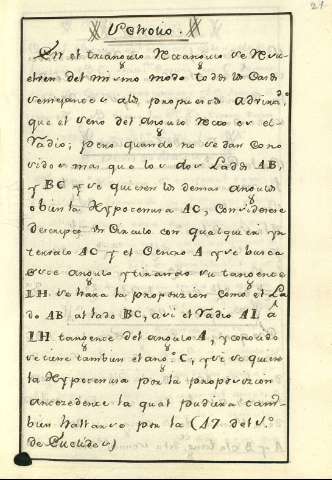 21
Escholio.
En el triangulo Rectangulo se Resuel
elven del mismo modo todos los Casos
semejantes a los propuestos advirtdo.
que el seno del angulo Recto es el
Radio; pero quando no se dan cono
cidos mas que los dos Lados AB,
y BC y se quieren los demas angulos
o bien la Hypotenusa AC, Considerese
descripto un Circulo con qualquier yn
tervalo AC y el Centro A y se busca
esse angulo y tirando su tangente
IH se hara la proporzion como el La
do AB al lado BC, asi el Radio AI á
IH tangente del angulo A, y conocido
se tiene tambien el ango. C, y si se quiere
la Hypotenusa por la proposizion
antezedente la qual pudiera tam
bien hallarse por la (47 del 1o.
de Euclides)